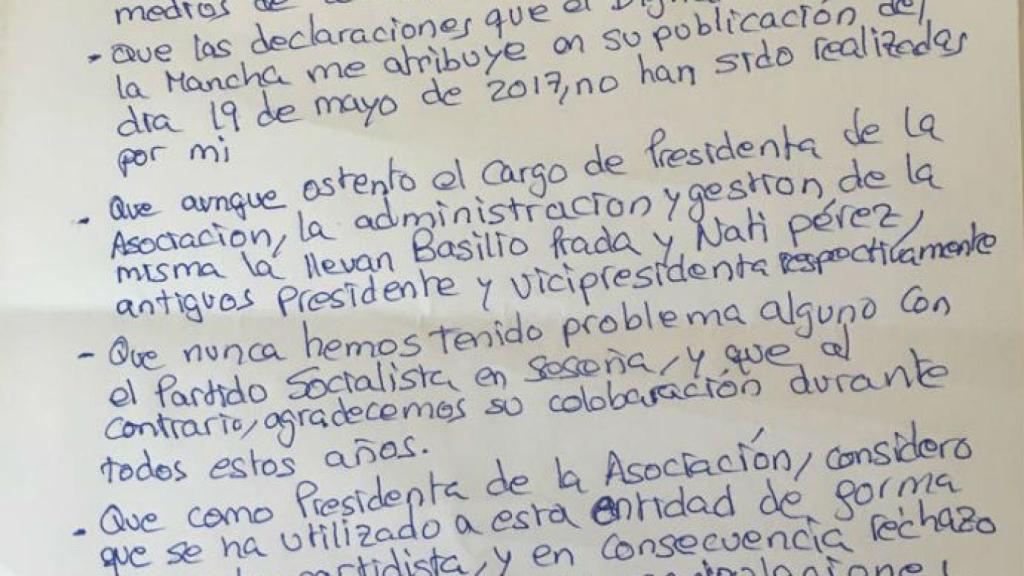 medios de
- Que las declaraciones que el Dig
la Mancha me atribuye en su publicación del
día 19 de mayo de 2017, no han sido realizadas
por mi
- Que aunque ostento el cargo de Presidenta de la
Asociación, la administración y gestión de la
misma la llevan Basilio Prada y Nati pérez,
antiguos Presidente y vicipresidenta respectivamente
- Que nunca hemos tenido problema alguno con
el Partido Socialista en Seseña, y que al
contrario, agradecemos su colobaración durante
todos estos años.
- Que como Presidenta de la Asociación, considero
que se ha utilizado a esta entidad de forma
partidista, y en consecuencia rechazo